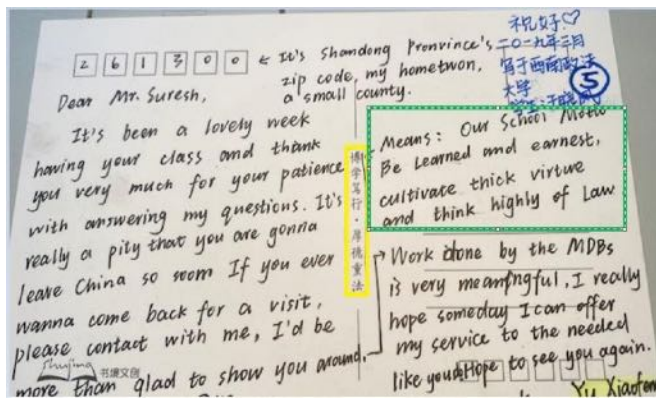 261300 ← It's Shandong Pronvince's
zip code, my hometwon,
a small county.
祝好♡
二〇一九年三月
写于西南政法
大学
学生:于晓
⑤
Dear Mr. Suresh,
It's been a lovely week
having your class and thank
you very much for your patience
with answering my questions. It's
really a pity that you are gonna
leave China so soom If you ever
wanna come back for a visit,
please contact with me, I'd be
more than glad to show you around.
博学笃行·厚德重法
Means: Our School Motto
Be Learned and earnest,
cultivate thick virtue
and think highly of Law
Work done by the MDBs
is very meanfngful, I really
hope someday I can offer
my service to the needed
like you. Hope to see you again.
Yu Xiaofen
Shujing
书境文创